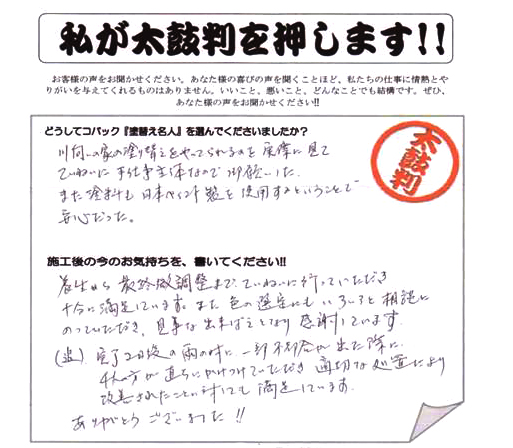 私が太鼓判を押します!!
お客様の声をお聞かせください。あなた様の喜びの声を聞くことほど、私たちの仕事に情熱とや
りがいを与えてくれるものはありません。いいこと、悪いこと、どんなことでも結構です。ぜひ、
あなた様の声をお聞かせください!!
どうしてコバック『塗替え名人』を選んでくださいましたか?
太鼓判
川向いの家の塗り替えをやってられるのを実際に見て
ていねいに 手仕事主体なので お願いした
また塗料も 日本ペイント製を使用するということで
安心だった。
施工後の今のお気持ちを、書いてください!!
養生から 最終微調整まで ていねいに行っていただき
十分に満足しています。また 色の選定にも いろいろと 相談に
のっていただき、見事な 出来ばえとなり 感謝しています
(追) 完了2日後の雨の時に、一部不具合が 出た際に
4人の方が 直ちにかけつけていただき 適切な処置により
改善されたことに対しても 満足しています.
ありがとう ございました!!